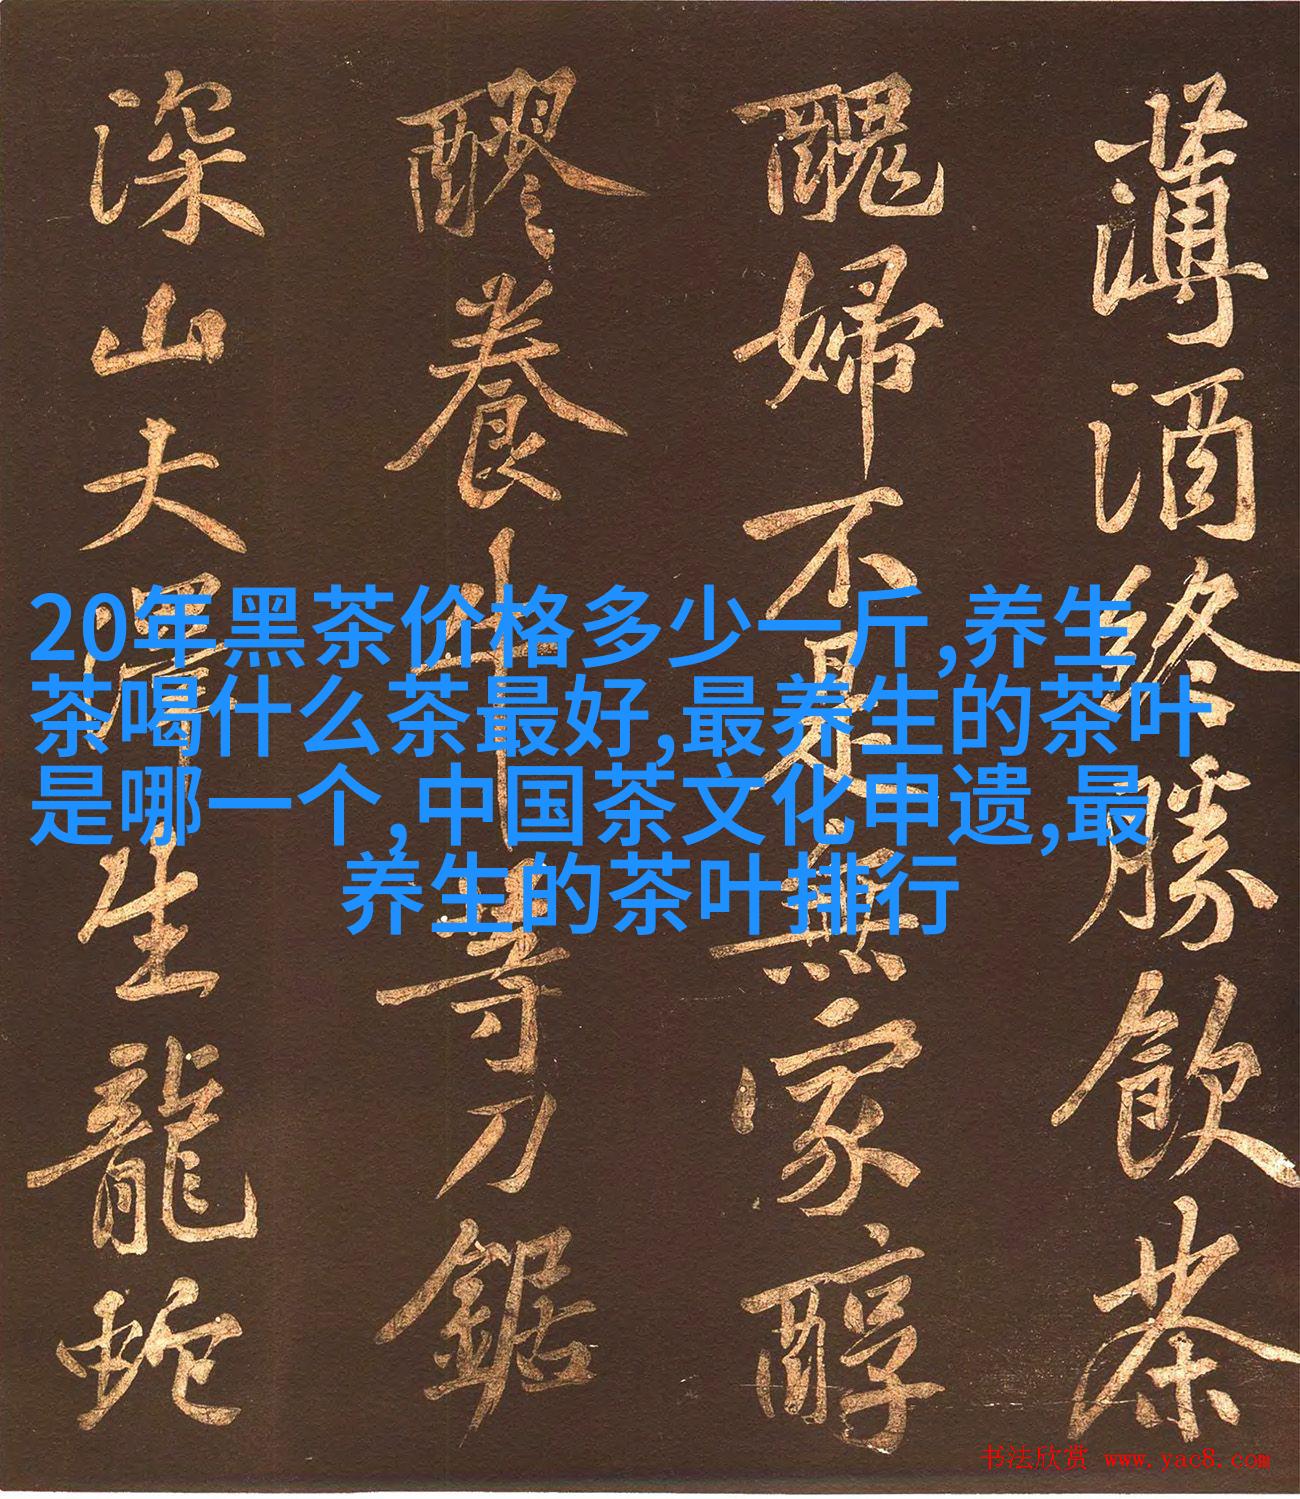 薄酒終勝飲茶
醜婦不是無家醇
醪養牛等刀鋸
深山大澤生龍蛇
20年黑茶价格多少一斤,养生
茶喝什么茶最好,最养生的茶叶
是哪一个,中国茶文化申遗,最
养生的茶叶排行
书法欣赏 www.yac8.com